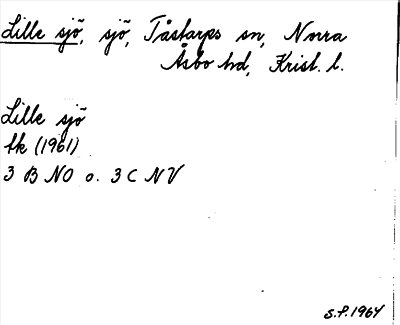 Lille sjö, sjö, Tåstarps sn, Norra
Åsbo hd, Krist. l.
Lille sjö
tk (1961)
3 B NO o. 3 C NV
S.P. 1964